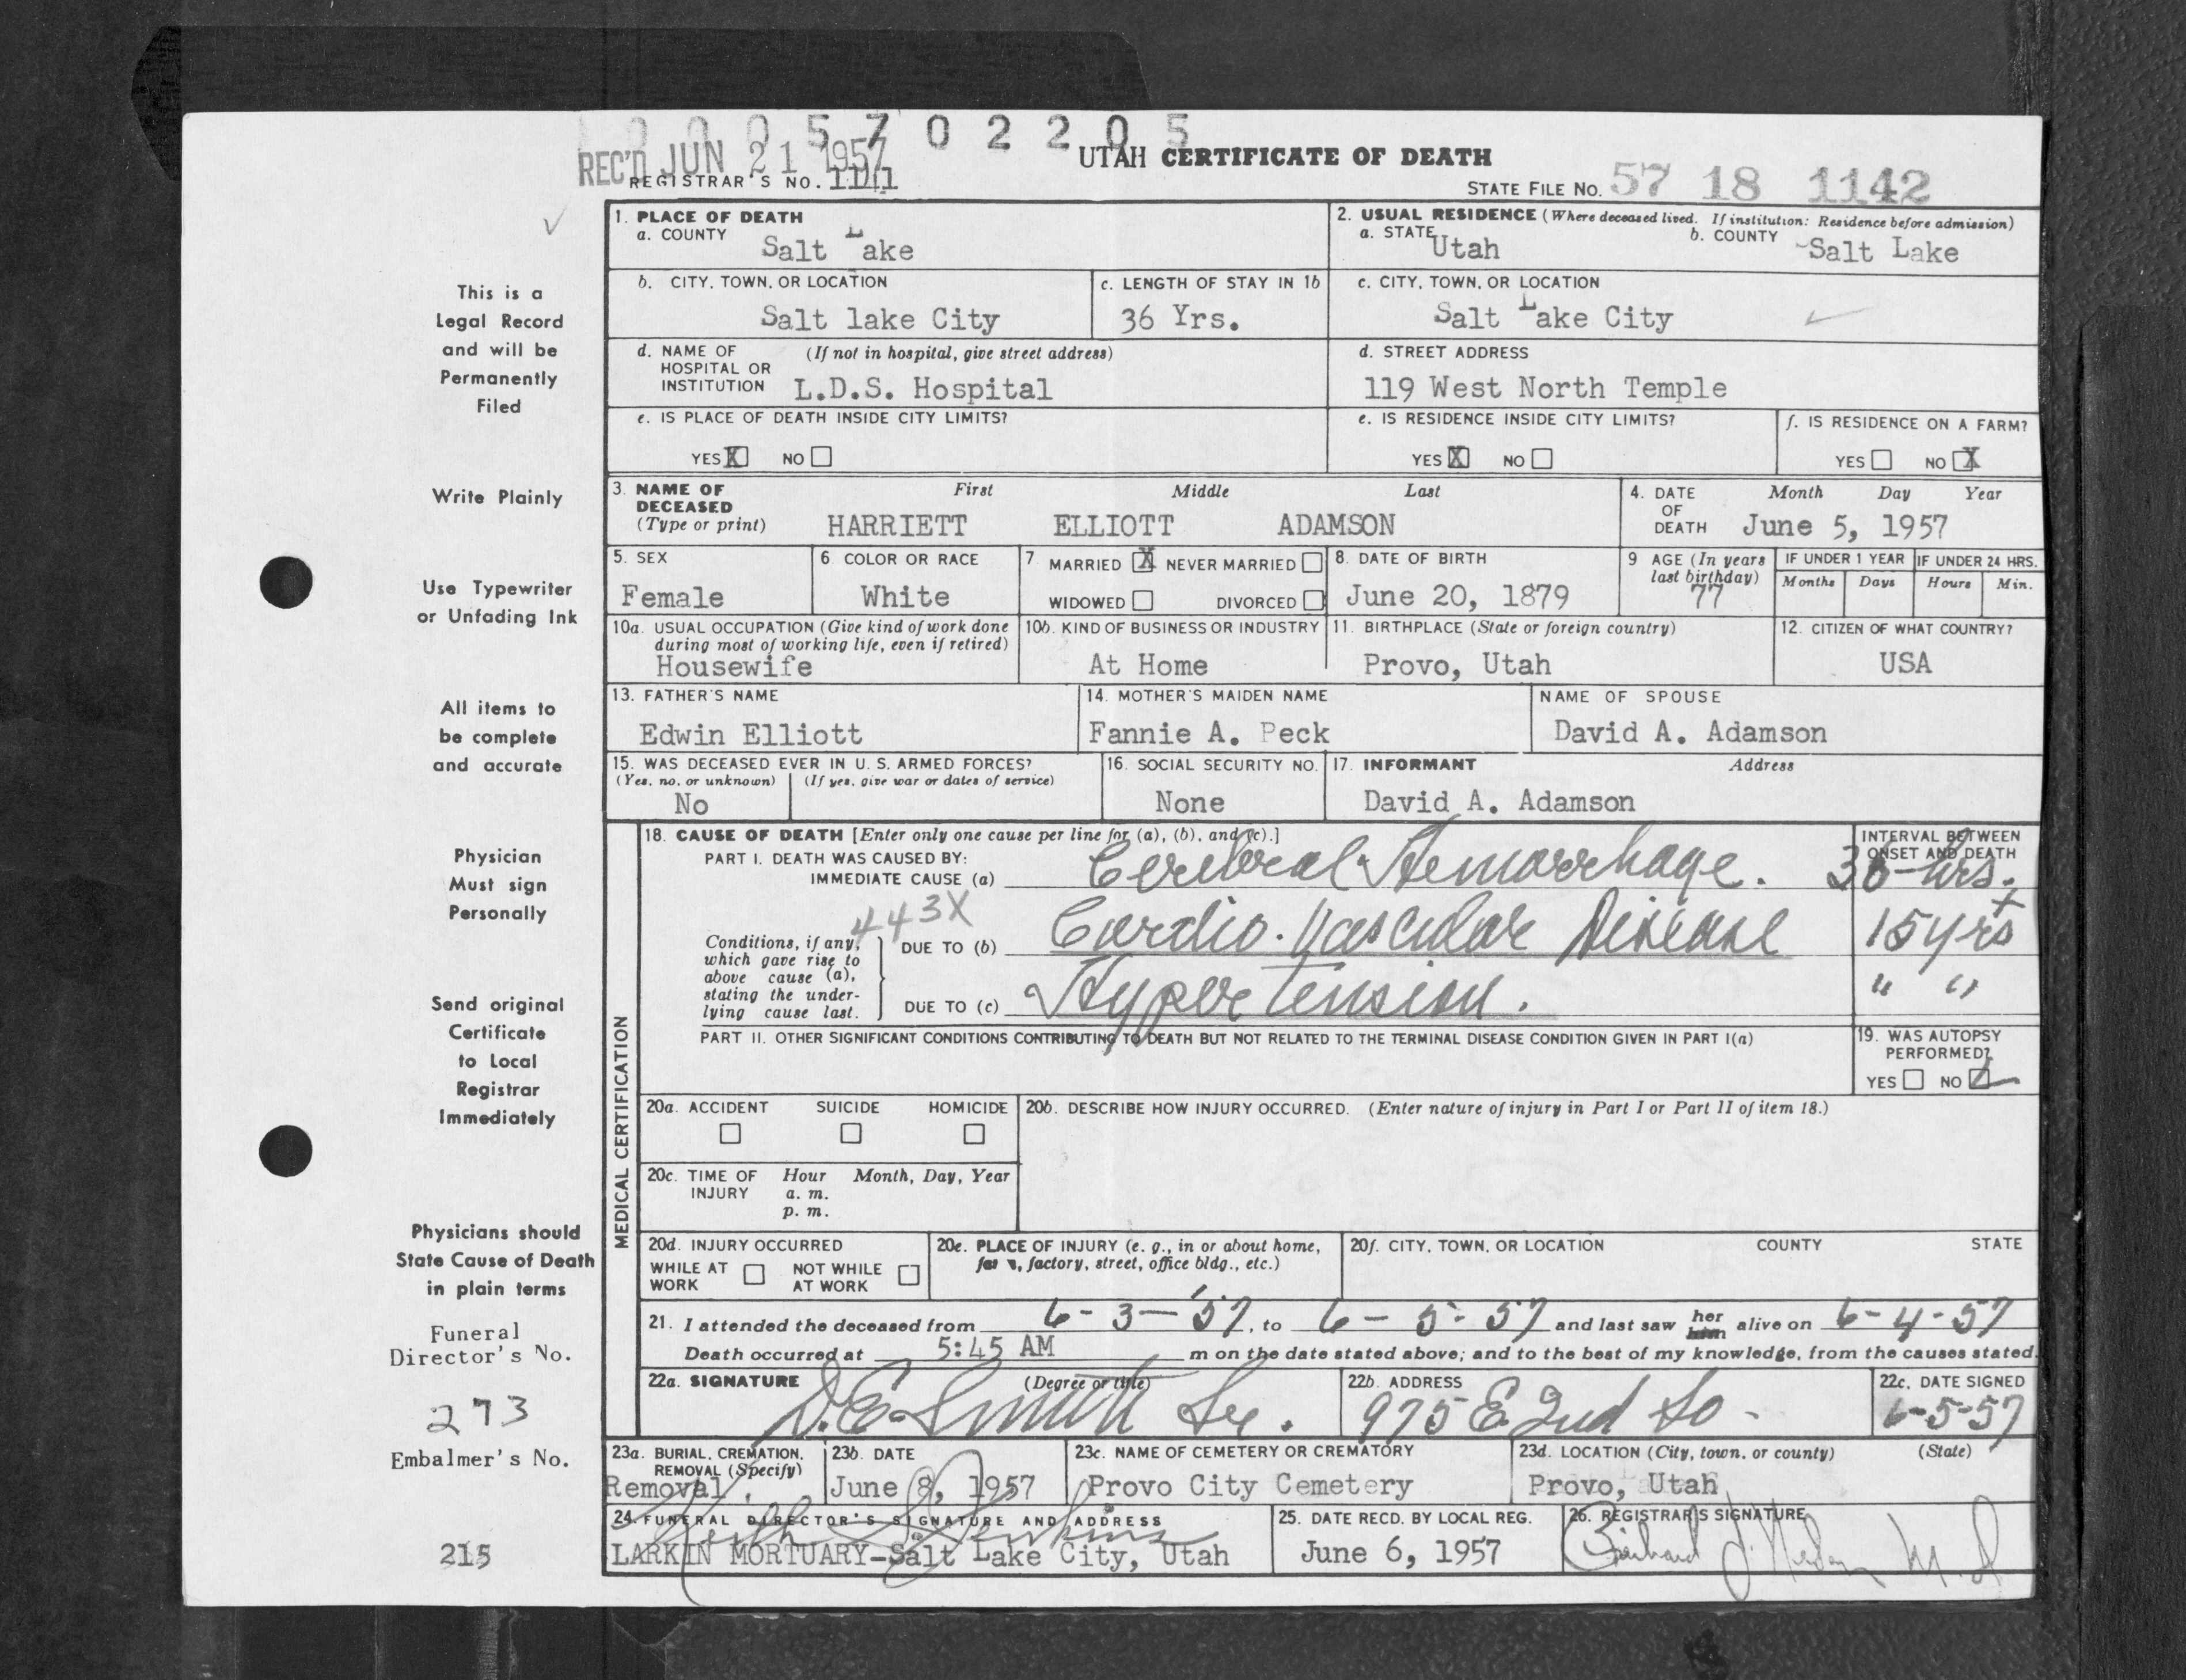 0 0 0 5 7 0 2 2 0 5
REC'D JUN 21 1957
UTAH CERTIFICATE OF DEATH
REGISTRAR'S NO.
STATE FILE NO. 57 18 1142
1. PLACE OF DEATH
a. COUNTY Salt Lake
2. USUAL RESIDENCE (Where deceased lived. If institution: Residence before admission)
a. STATE Utah b. COUNTY Salt Lake
b. CITY, TOWN, OR LOCATION
Salt lake City
c. LENGTH OF STAY IN 1b
36 Yrs.
c. CITY, TOWN, OR LOCATION
Salt Lake City
d. NAME OF HOSPITAL OR INSTITUTION (If not in hospital, give street address)
L.D.S. Hospital
d. STREET ADDRESS
119 West North Temple
e. IS PLACE OF DEATH INSIDE CITY LIMITS?
YES X NO
e. IS RESIDENCE INSIDE CITY LIMITS?
YES X NO
f. IS RESIDENCE ON A FARM?
YES NO X
3. NAME OF DECEASED (Type or print) First Middle Last
HARRIETT ELLIOTT ADAMSON
4. DATE OF DEATH Month Day Year
June 5, 1957
5. SEX
Female
6 COLOR OR RACE
White
7 MARRIED X NEVER MARRIED
WIDOWED DIVORCED
8. DATE OF BIRTH
June 20, 1879
9 AGE (In years last birthday)
77
IF UNDER 1 YEAR IF UNDER 24 HRS.
Months Days Hours Min.
10a. USUAL OCCUPATION (Give kind of work done
during most of working life, even if retired)
Housewife
10b. KIND OF BUSINESS OR INDUSTRY
At Home
11. BIRTHPLACE (State or foreign country)
Provo, Utah
12. CITIZEN OF WHAT COUNTRY?
USA
13. FATHER'S NAME
Edwin Elliott
14. MOTHER'S MAIDEN NAME
Fannie A. Peck
NAME OF SPOUSE
David A. Adamson
15. WAS DECEASED EVER IN U. S. ARMED FORCES?
(Yes, no, or unknown) (If yes, give war or dates of service)
No
16. SOCIAL SECURITY NO.
None
17. INFORMANT Address
David A. Adamson
MEDICAL CERTIFICATION
18. CAUSE OF DEATH [Enter only one cause per line for (a), (b), and (c).]
INTERVAL BETWEEN
ONSET AND DEATH
PART I. DEATH WAS CAUSED BY:
IMMEDIATE CAUSE (a) Cerebral Hemorrhage. 36 hrs.
443X
Conditions, if any,
which gave rise to
above cause (a),
stating the under-
lying cause last.
DUE TO (b) Cardio-Vascular Disease 15 yrs +
DUE TO (c) Hypertension. " "
PART II. OTHER SIGNIFICANT CONDITIONS CONTRIBUTING TO DEATH BUT NOT RELATED TO THE TERMINAL DISEASE CONDITION GIVEN IN PART I(a)
19. WAS AUTOPSY
PERFORMED?
YES NO
20a. ACCIDENT SUICIDE HOMICIDE
20b. DESCRIBE HOW INJURY OCCURRED. (Enter nature of injury in Part I or Part II of item 18.)
20c. TIME OF INJURY Hour Month, Day, Year
a. m.
p. m.
20d. INJURY OCCURRED
WHILE AT WORK NOT WHILE AT WORK
20e. PLACE OF INJURY (e. g., in or about home,
farm, factory, street, office bldg., etc.)
20f. CITY, TOWN, OR LOCATION COUNTY STATE
21. I attended the deceased from 6-3-57, to 6-5-57 and last saw her him alive on 6-4-57
Death occurred at 5:45 AM m on the date stated above; and to the best of my knowledge, from the causes stated.
22a. SIGNATURE (Degree or title)
D. E. Smith Sr.
22b. ADDRESS
975 E 2nd So-
22c. DATE SIGNED
6-5-57
23a. BURIAL, CREMATION,
REMOVAL (Specify)
Removal
23b. DATE
June 8, 1957
23c. NAME OF CEMETERY OR CREMATORY
Provo City Cemetery
23d. LOCATION (City, town, or county) (State)
Provo, Utah
24. FUNERAL DIRECTOR'S SIGNATURE AND ADDRESS
Keith S Jenkins
LARKIN MORTUARY-Salt Lake City, Utah
25. DATE RECD. BY LOCAL REG.
June 6, 1957
26. REGISTRAR'S SIGNATURE
This is a
Legal Record
and will be
Permanently
Filed
Write Plainly
Use Typewriter
or Unfading Ink
All items to
be complete
and accurate
Physician
Must sign
Personally
Send original
Certificate
to Local
Registrar
Immediately
Physicians should
State Cause of Death
in plain terms
Funeral
Director's No.
273
Embalmer's No.
215